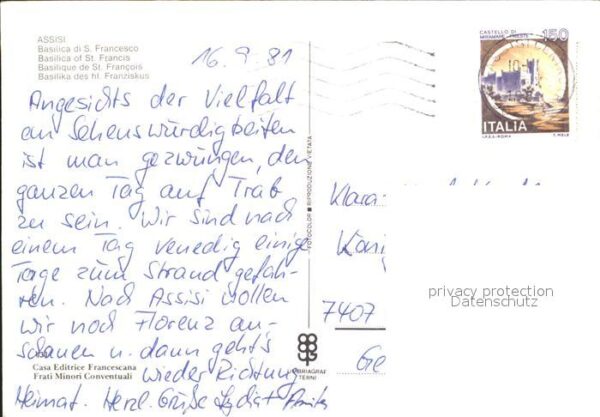 ASSISI
Basilica di S. Francesco
Basilica of St. Francis
Basilique de St. François
Basilika des hl. Franziskus
16.9.81
Angesichts der Vielfalt
an Sehenswürdigkeiten
ist man gezwungen, den
ganzen Tag auf Trab
zu sein. Wir sind nach
einem Tag Venedig einige
Tage zum Strand gefah-
ren. Nach Assisi wollen
wir noch Florenz an-
schauen u. dann geht's
wieder Richtung
Heimat. Herzl. Grüße
Casa Editrice Francescana
Frati Minori Conventuali
FOTOCOLOR ■ RIPRODUZIONE VIETATA
TERNI
CASTELLO DI
MIRAMARE - TRIESTE
150
ITALIA
I.P.Z.S.-ROMA
Klara-
7407
privacy protection
Datenschutz